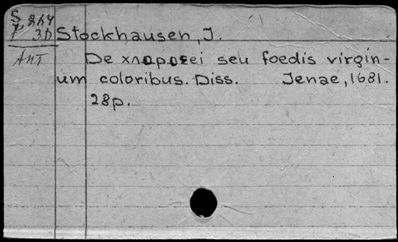 S,864
P 3D Stockhausen, J.
Ant De χλορωσει seu foedis virgin-
um coloribus. Diss. Jenae, 1681.
28p.